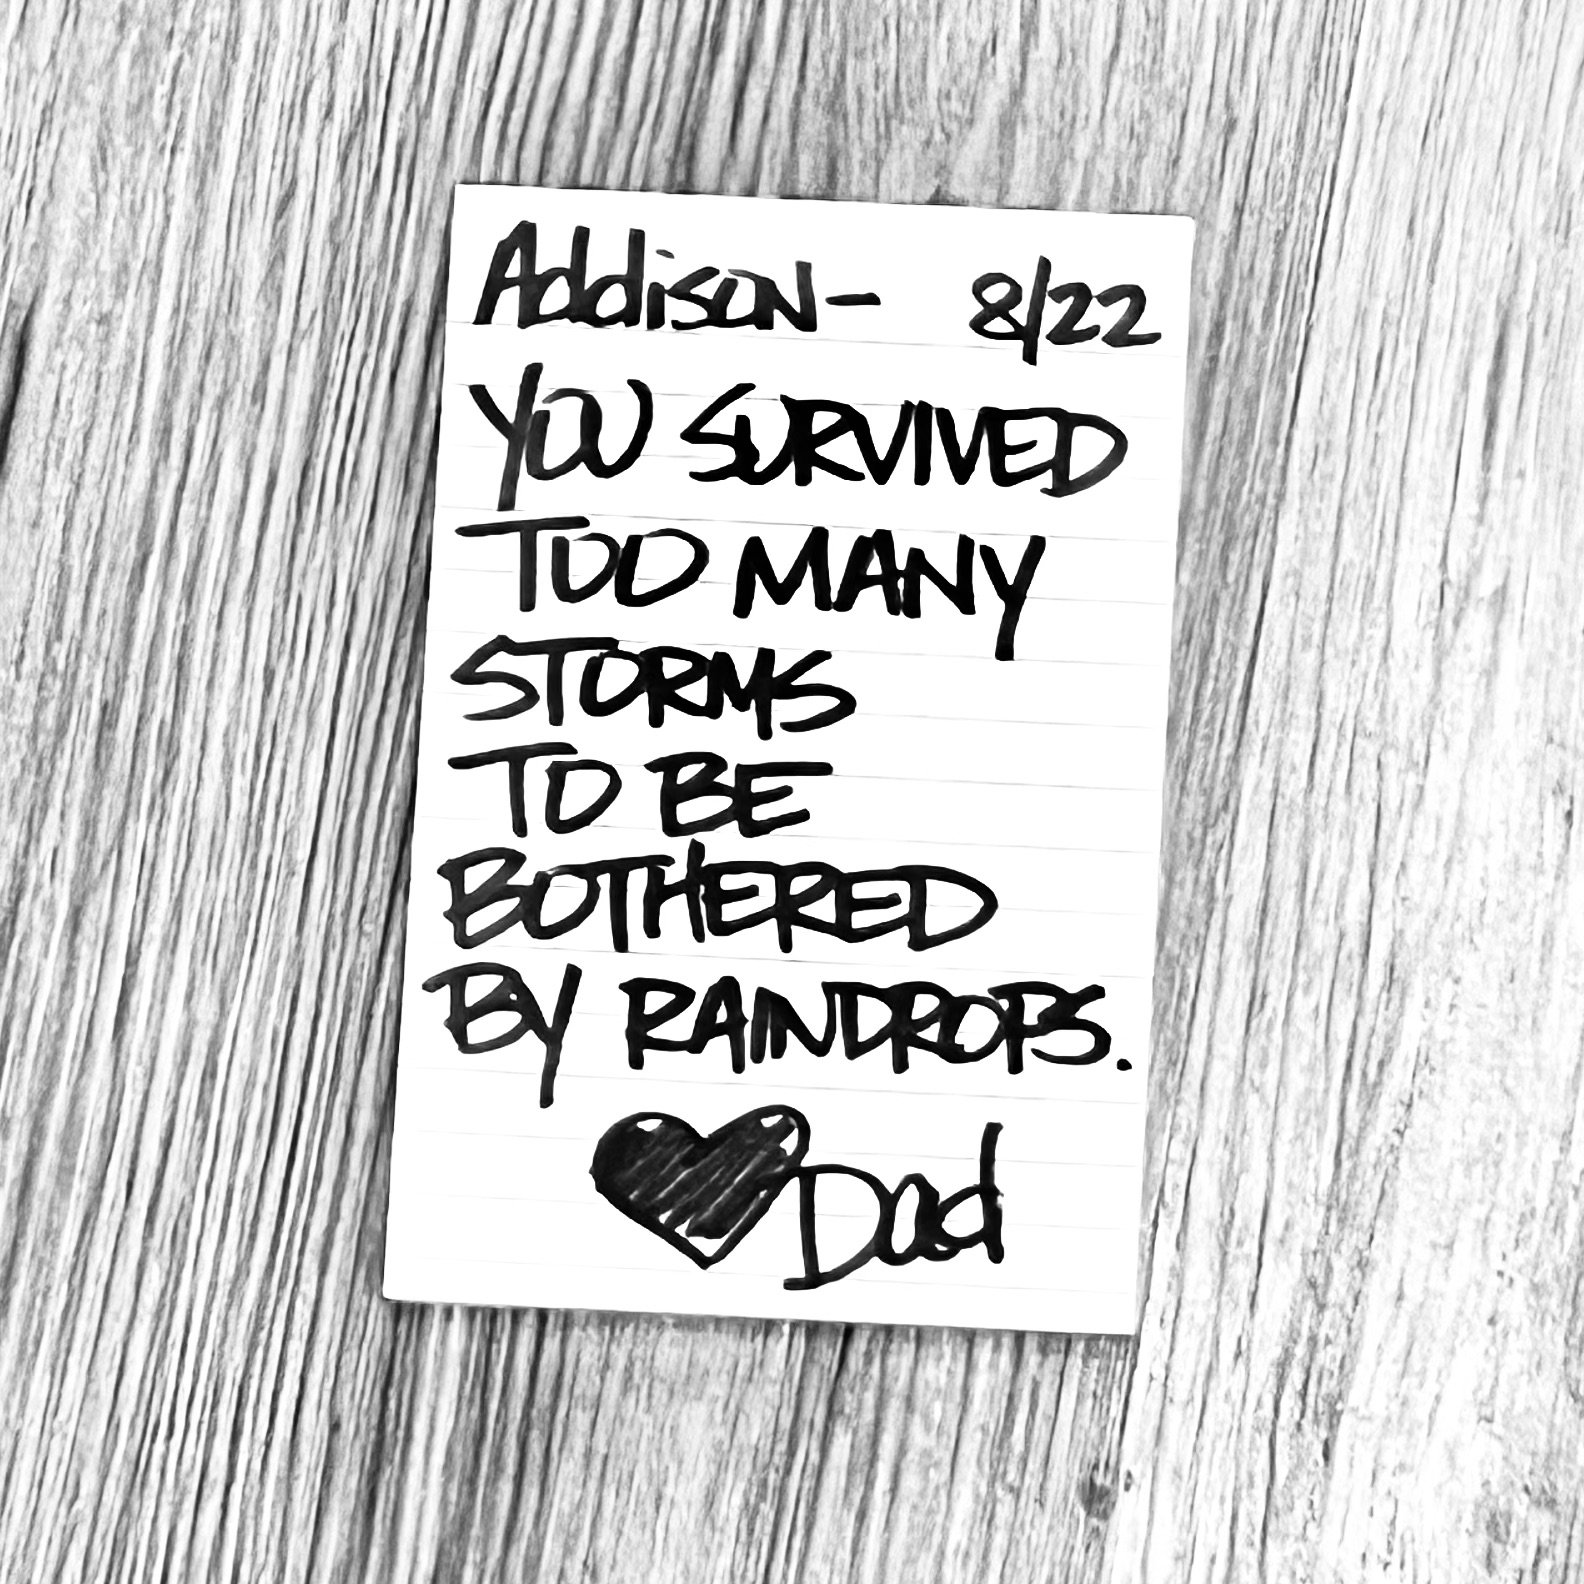 Addison- 8/22
YOU SURVIVED
TOO MANY
STORMS
TO BE
BOTHERED
BY RAINDROPS.
♥Dad